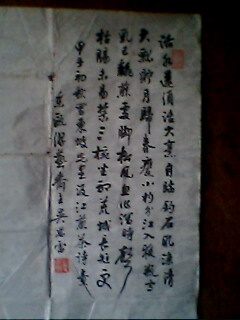 活水還須活火烹自臨釣石取深清
大瓢貯月歸春甕小杓分江入夜瓶雪
乳已翻煎處脚松風忽作瀉時聲
枯腸未易禁三椀坐聽荒城長短更
甲子初秋書東坡汲江煎茶詩意
齋主吳